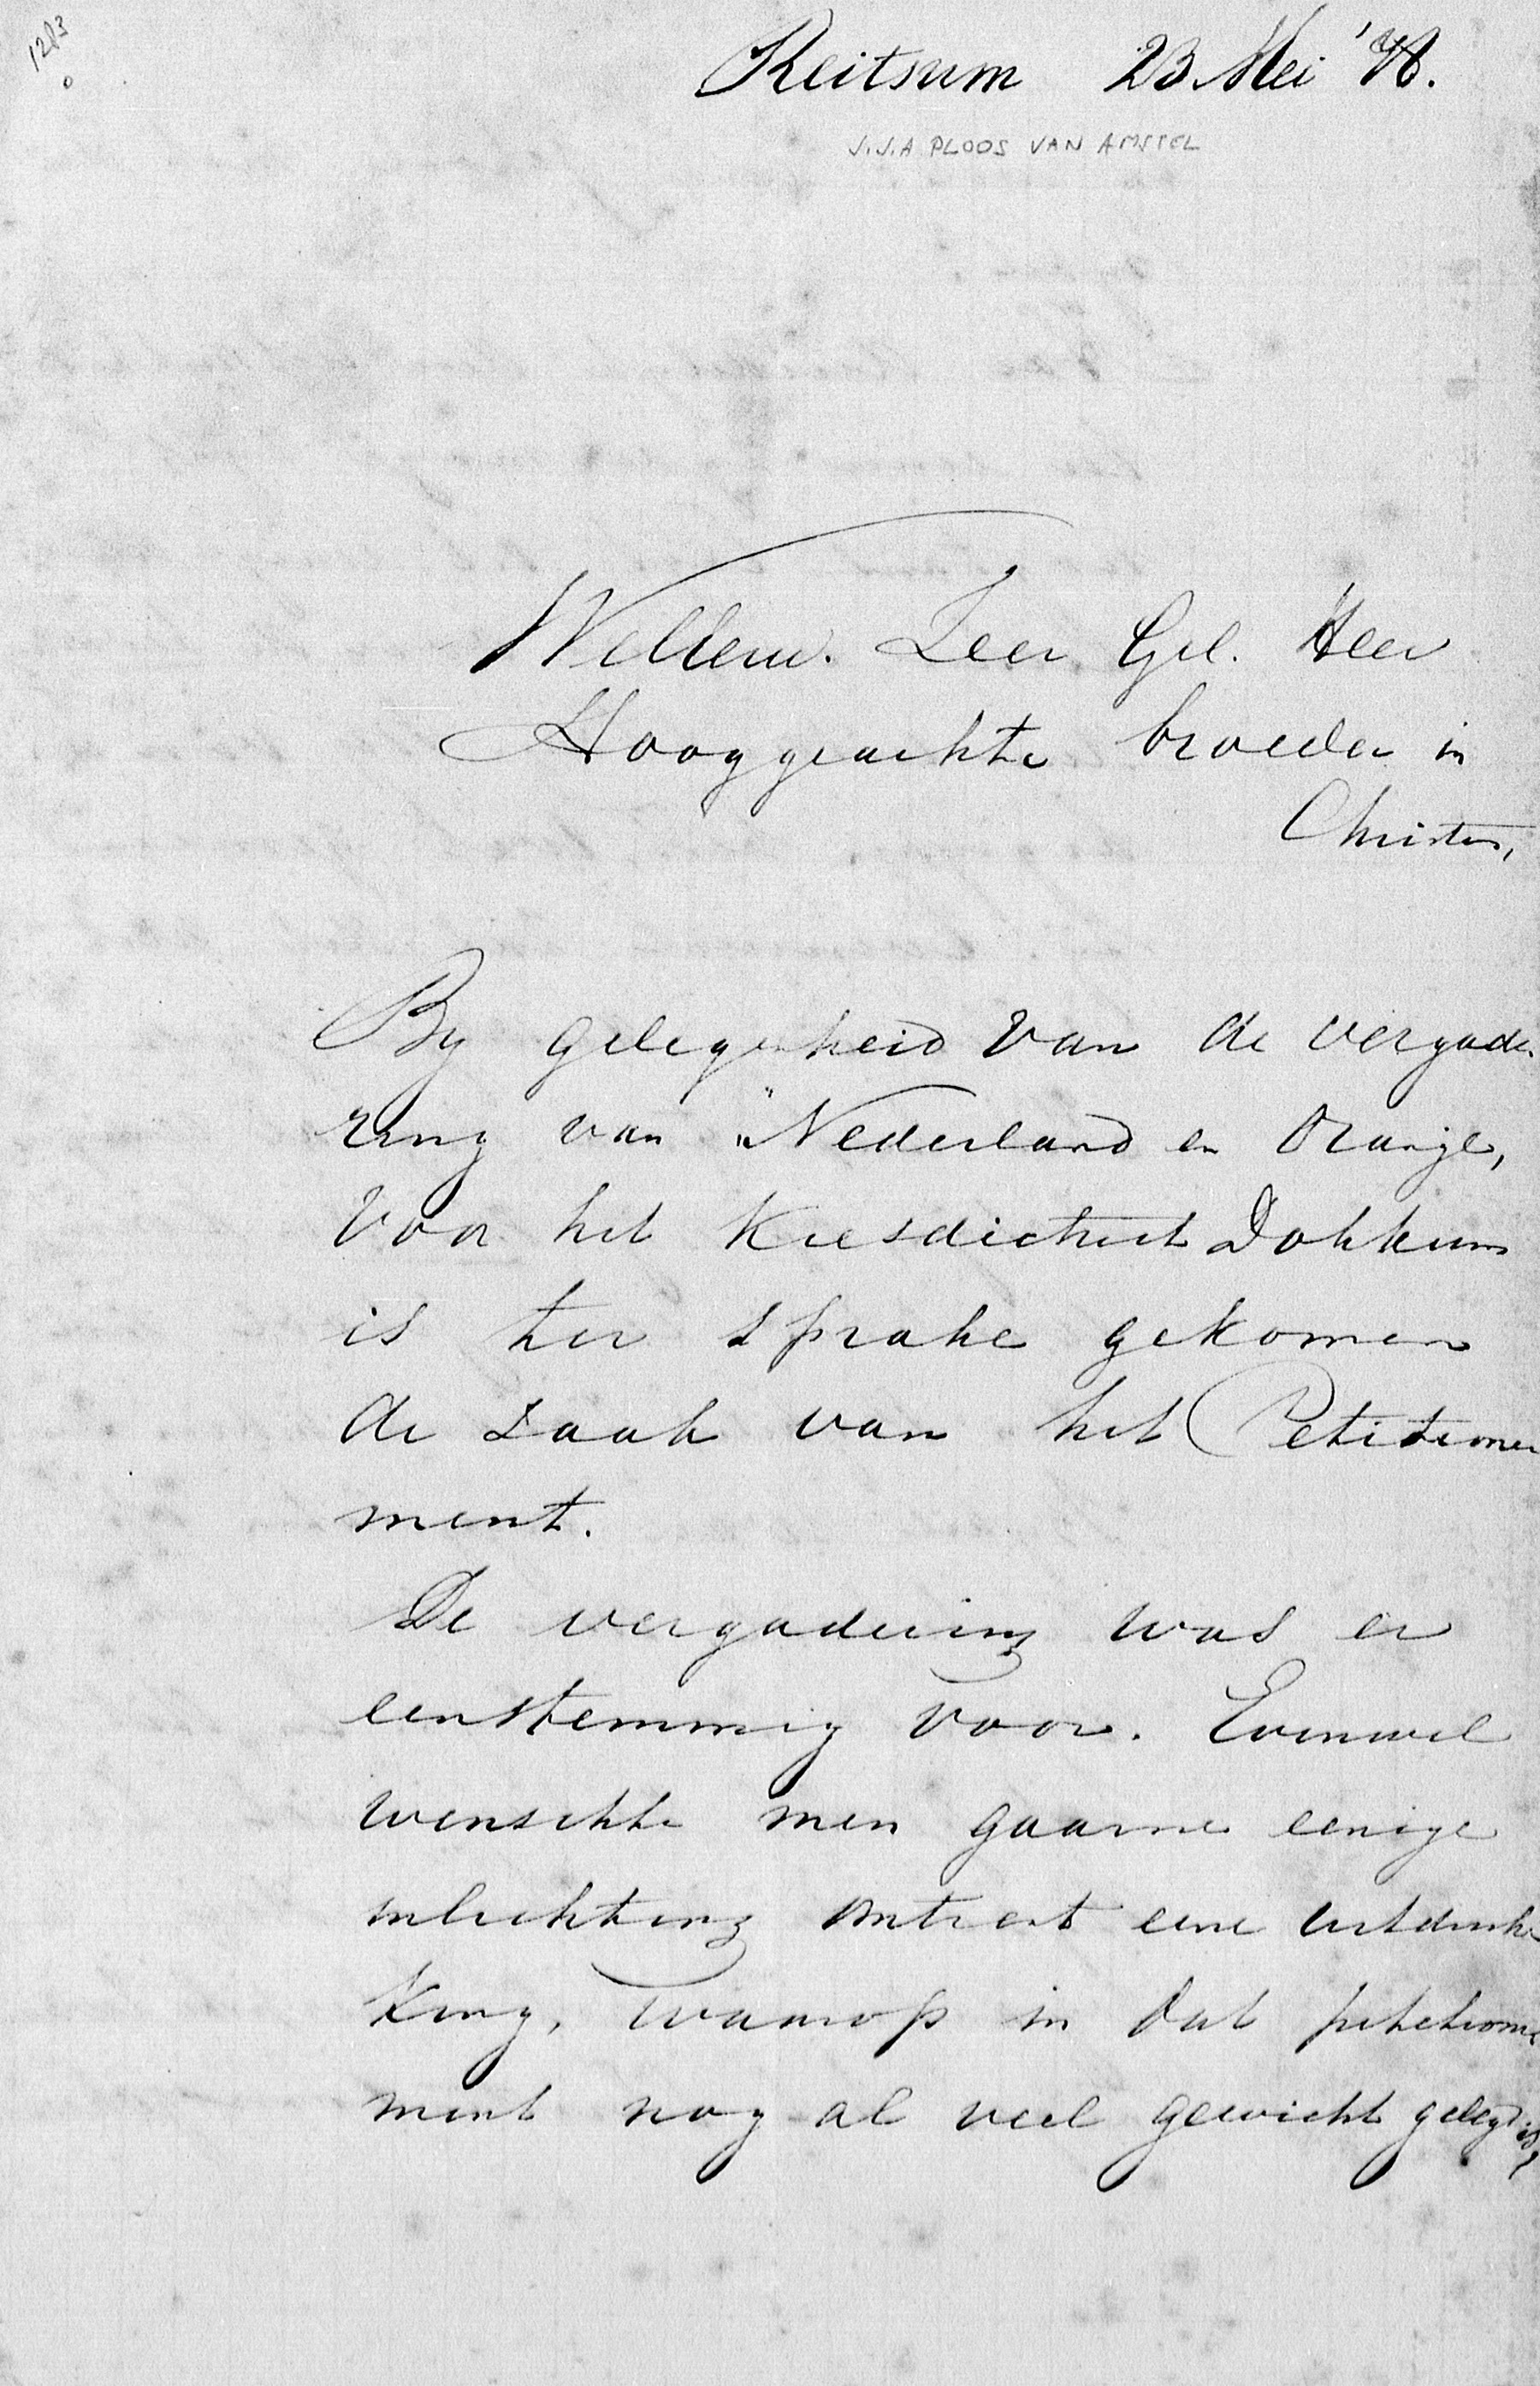 1283
Reitsum 23 Mei '78.
J.J.A PLOOS VAN AMSTEL
WelEerw. Zeer Gel. Heer
Hooggeachte broeder in
Christus,
By gelegenheid van de vergade
ring van "Nederland en Oranje,
voor het Kiesdistrict Dokkum
is ter sprake gekomen
de zaak van het Petitionne
ment.
De vergadering was er
eenstemmig voor. Evenwel
wenschte men gaarne eenige
inlichting omtrent eene uitdruk
king, waarop in dat petitionne
ment nog al veel gewicht gelegd is,